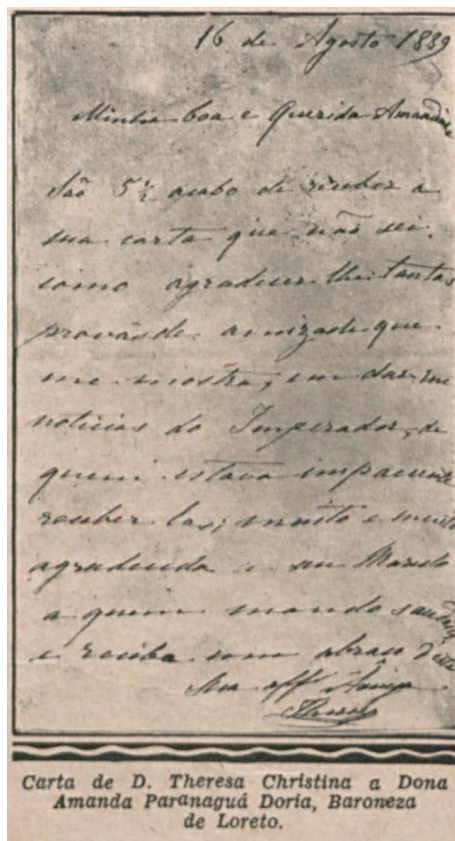 16 de Agosto 1889
Minha boa e Querida Amandinha
São 5½ acabo de receber a
sua carta que não sei
como agradecer lhe tantas
provas de amizade que
me mostra, em dar-me
noticias do Imperador, de
quem estava impaciente
receber las; muito e muito
agradecida a seu Marido
a quem mando saudades
e receba um abraso desta
Sua aff Amiga
Theresa
Carta de D. Theresa Christina a Dona
Amanda Paranaguá Doria, Baroneza
de Loreto.